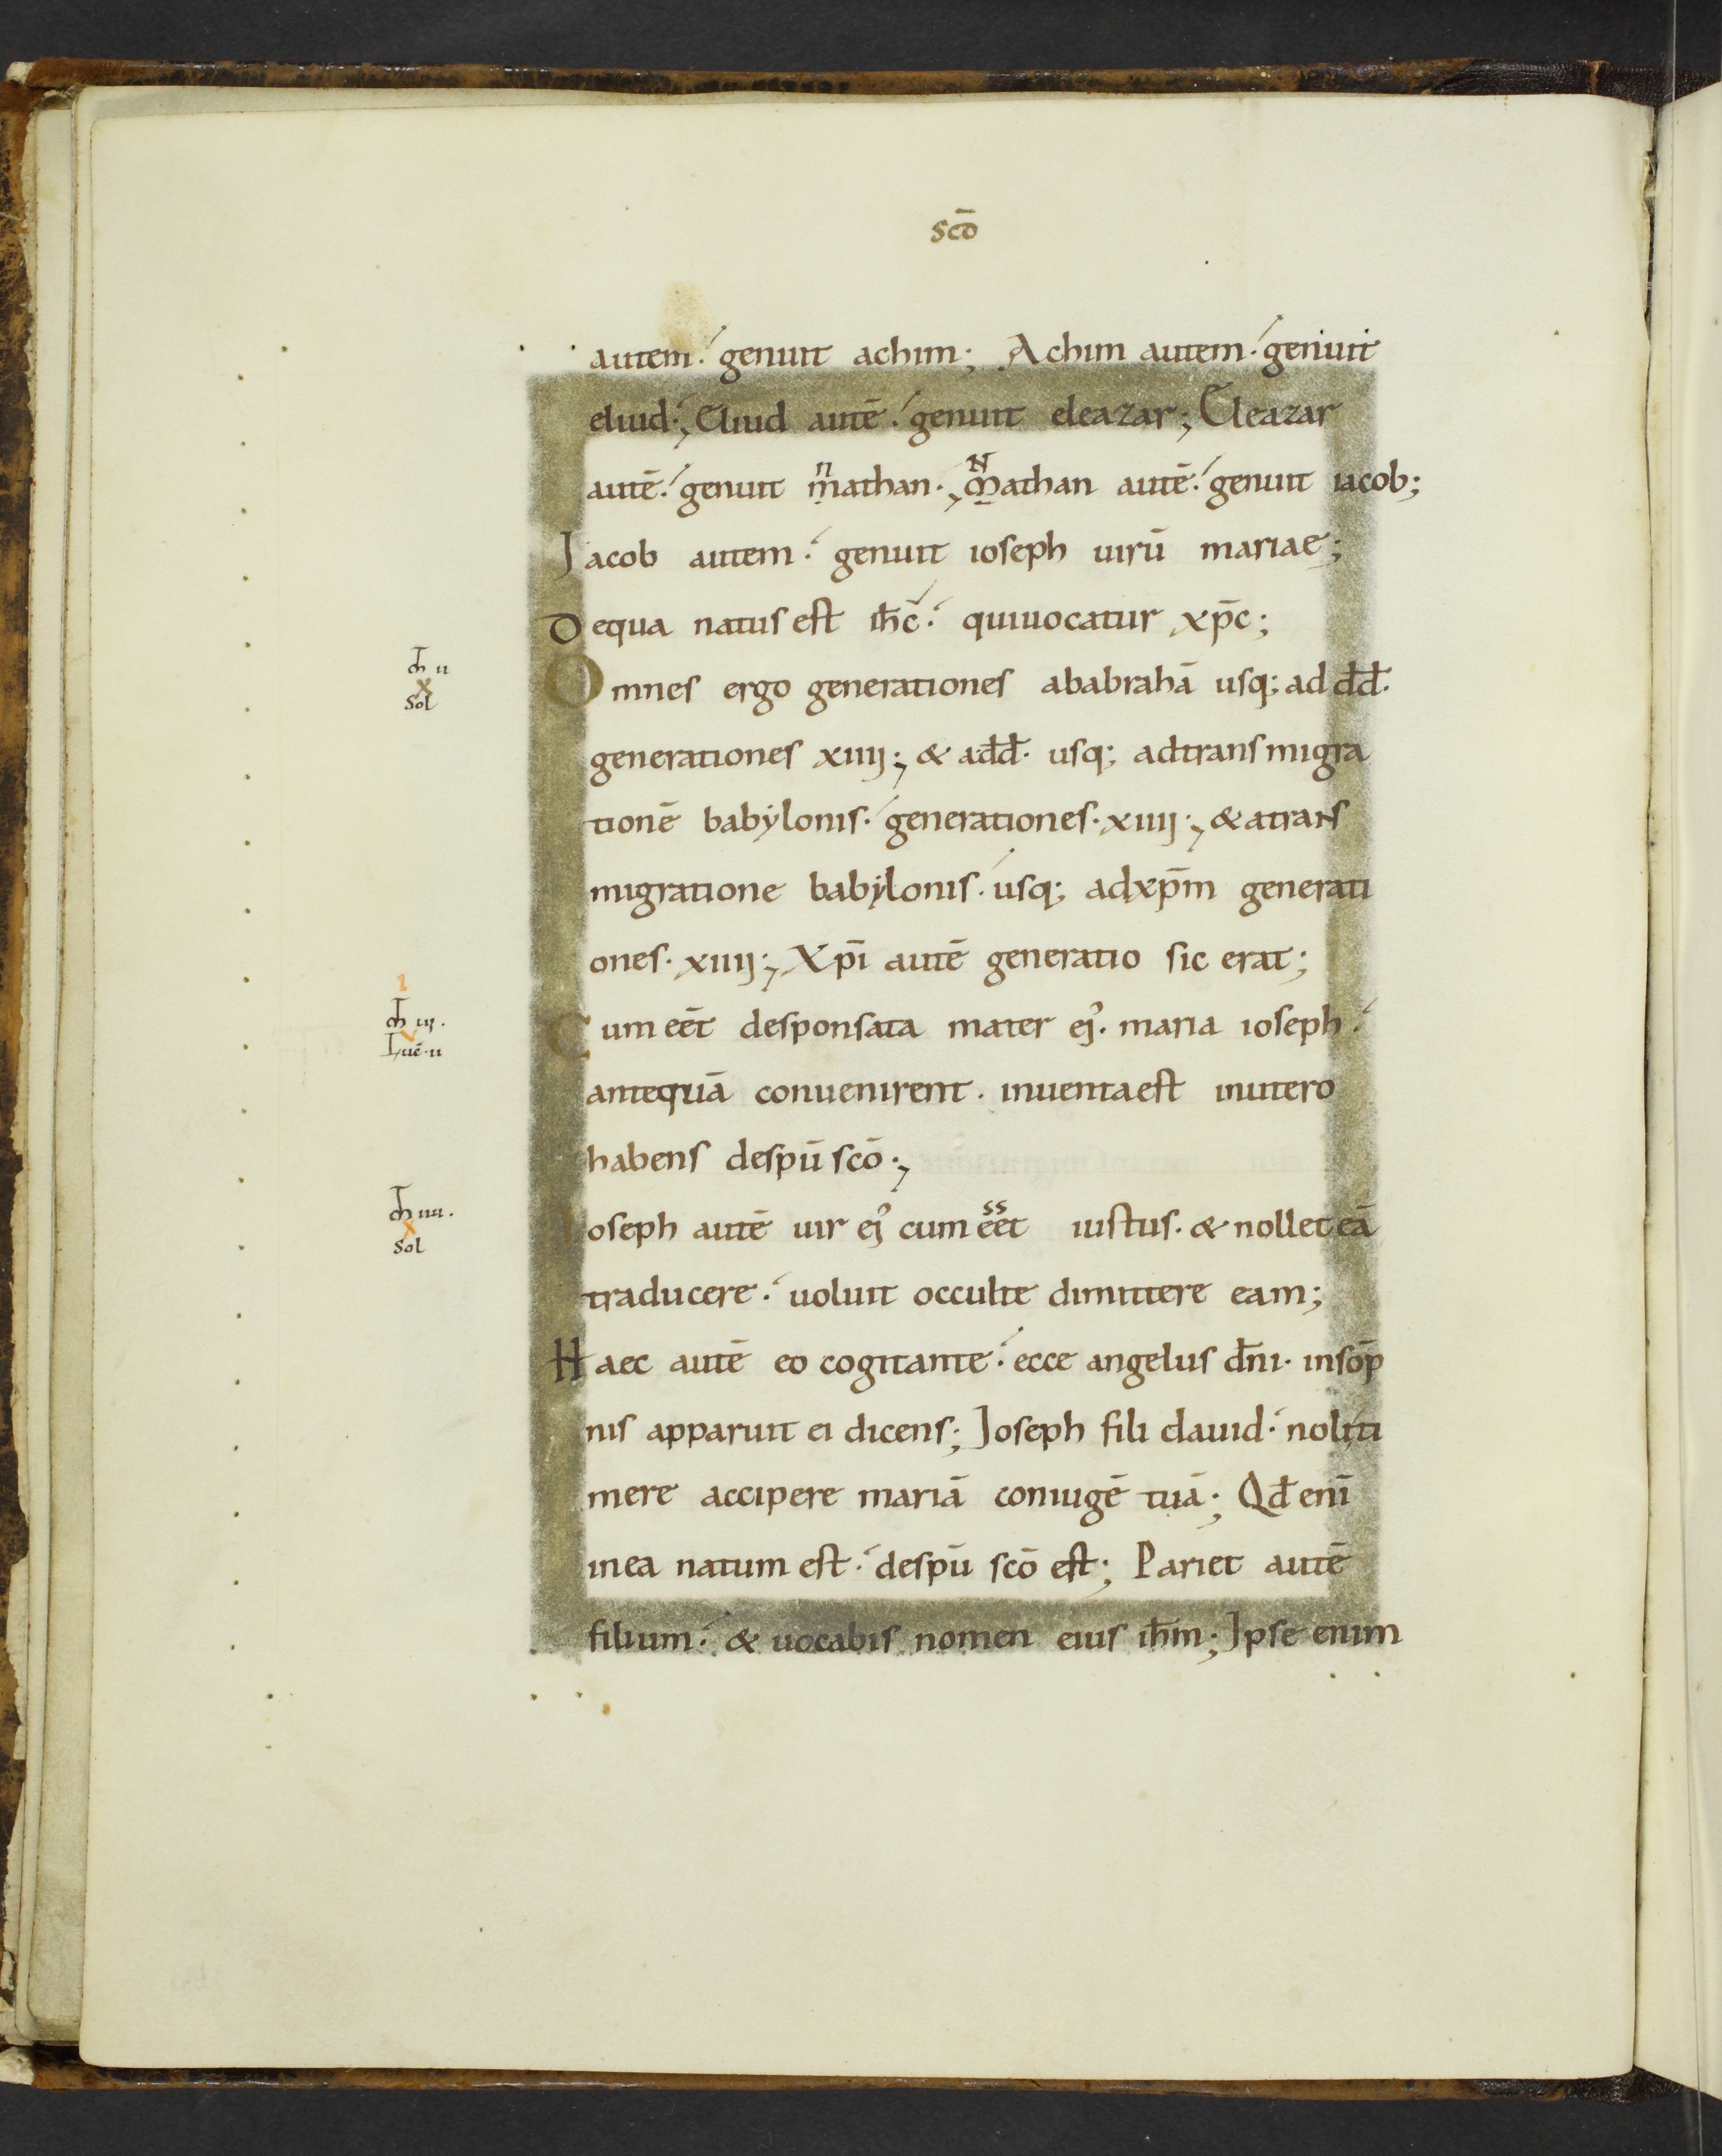 scd̄
autem · genuit achim; Achim autem · genuit
eliud; Eliud autē · genuit eleazar; Eleazar
n N
autē · genuit mathan · Mathan autē · genuit iacob;
Jacob autem · genuit ioseph uirū mariae;
Dequa natus est ih̄c · quiuocatur xp̄c;
m̄ ii
x
sol
Omnes ergo generationes ababrahā usq; ad dd̄ ·
generationes xiiij ; & add̄ · usq; adtransmigra
tionē babẏlonis · generationes · xiiij ; & atrans
migratione babẏlonis · usq; adxp̄m generati
ones · xiiij ; Xp̄i autē generatio sic erat;
1
m̄ iij ·
v
Luc̄ · ii
Cum eēt desponsata mater ej' · maria ioseph ·
antequā conuenirent · inuentaest inutero
habens despū scō ;
m̄ iiii ·
x
sol
ss
Ioseph autē uir ej' cum eet iustus · & nollet eā
traducere · uoluit occulte dimittere eam;
Haec autē eo cogitante · ecce angelus dn̄i · insōp
nis apparuit ei dicens; Joseph fili dauid · noli ti
mere accipere mariā coniugē tuā; Qd̄ enī
inea natum est · despū scō est; Pariet autē
filium · & uocabis nomen eius ih̄m; Jpse enim